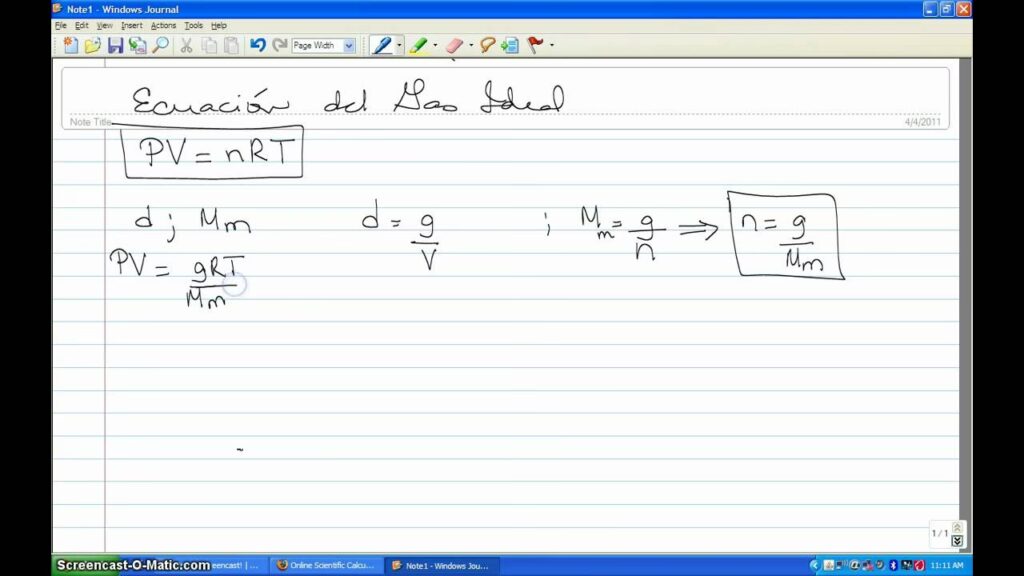 Note1 - Windows Journal
File Edit View Insert Actions Tools Help
Page Width
Ecuación del Gas Ideal
Note Title
4/4/2011
PV = nRT
d ; Mm d = g/V ; Mm = g/n ⇒ n = g/Mm
PV = gRT/Mm
1 / 1
Screencast-O-Matic.com
eencast! | ... Online Scientific Calcu... Note1 - Windows Jou... 11:11 AM